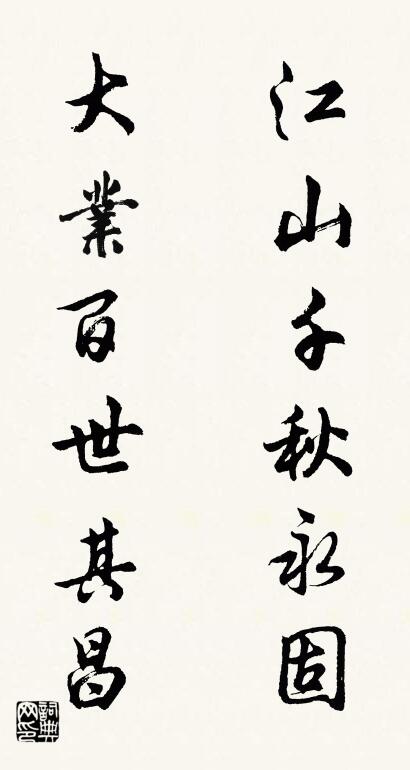 江山千秋永固
大業百世其昌
詞典网印